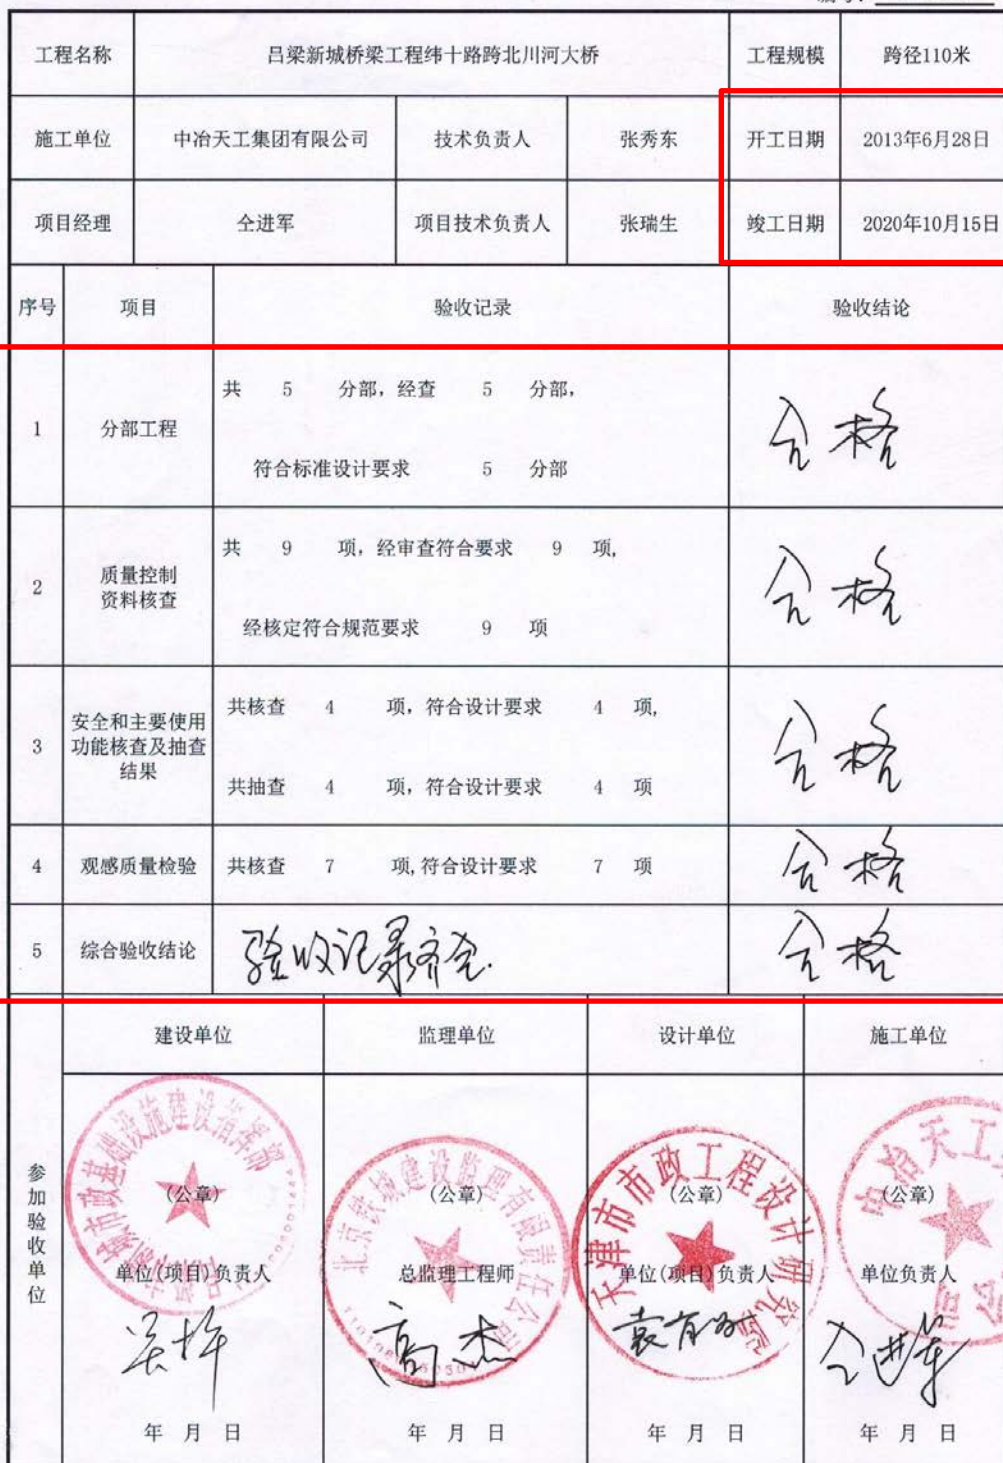 工程名称 吕梁新城桥梁工程纬十路跨北川河大桥 工程规模 跨径110米
施工单位 中冶天工集团有限公司 技术负责人 张秀东 开工日期 2013年6月28日
项目经理 仝进军 项目技术负责人 张瑞生 竣工日期 2020年10月15日
序号 项目 验收记录 验收结论
1 分部工程
共 5 分部，经查 5 分部，
符合标准设计要求 5 分部
合格
2 质量控制
资料核查
共 9 项，经审查符合要求 9 项，
经核定符合规范要求 9 项
合格
3 安全和主要使用
功能核查及抽查
结果
共核查 4 项，符合设计要求 4 项，
共抽查 4 项，符合设计要求 4 项
合格
4 观感质量检验 共核查 7 项,符合设计要求 7 项 合格
5 综合验收结论 验收记录齐全. 合格
参加验收单位
建设单位 监理单位 设计单位 施工单位
北京铁城建设监理有限责任公司
天津市市政工程设计研究院
(公章) (公章) (公章) (公章)
单位(项目)负责人 总监理工程师 单位(项目)负责人 单位负责人
高杰 仝进军
年 月 日 年 月 日 年 月 日 年 月 日